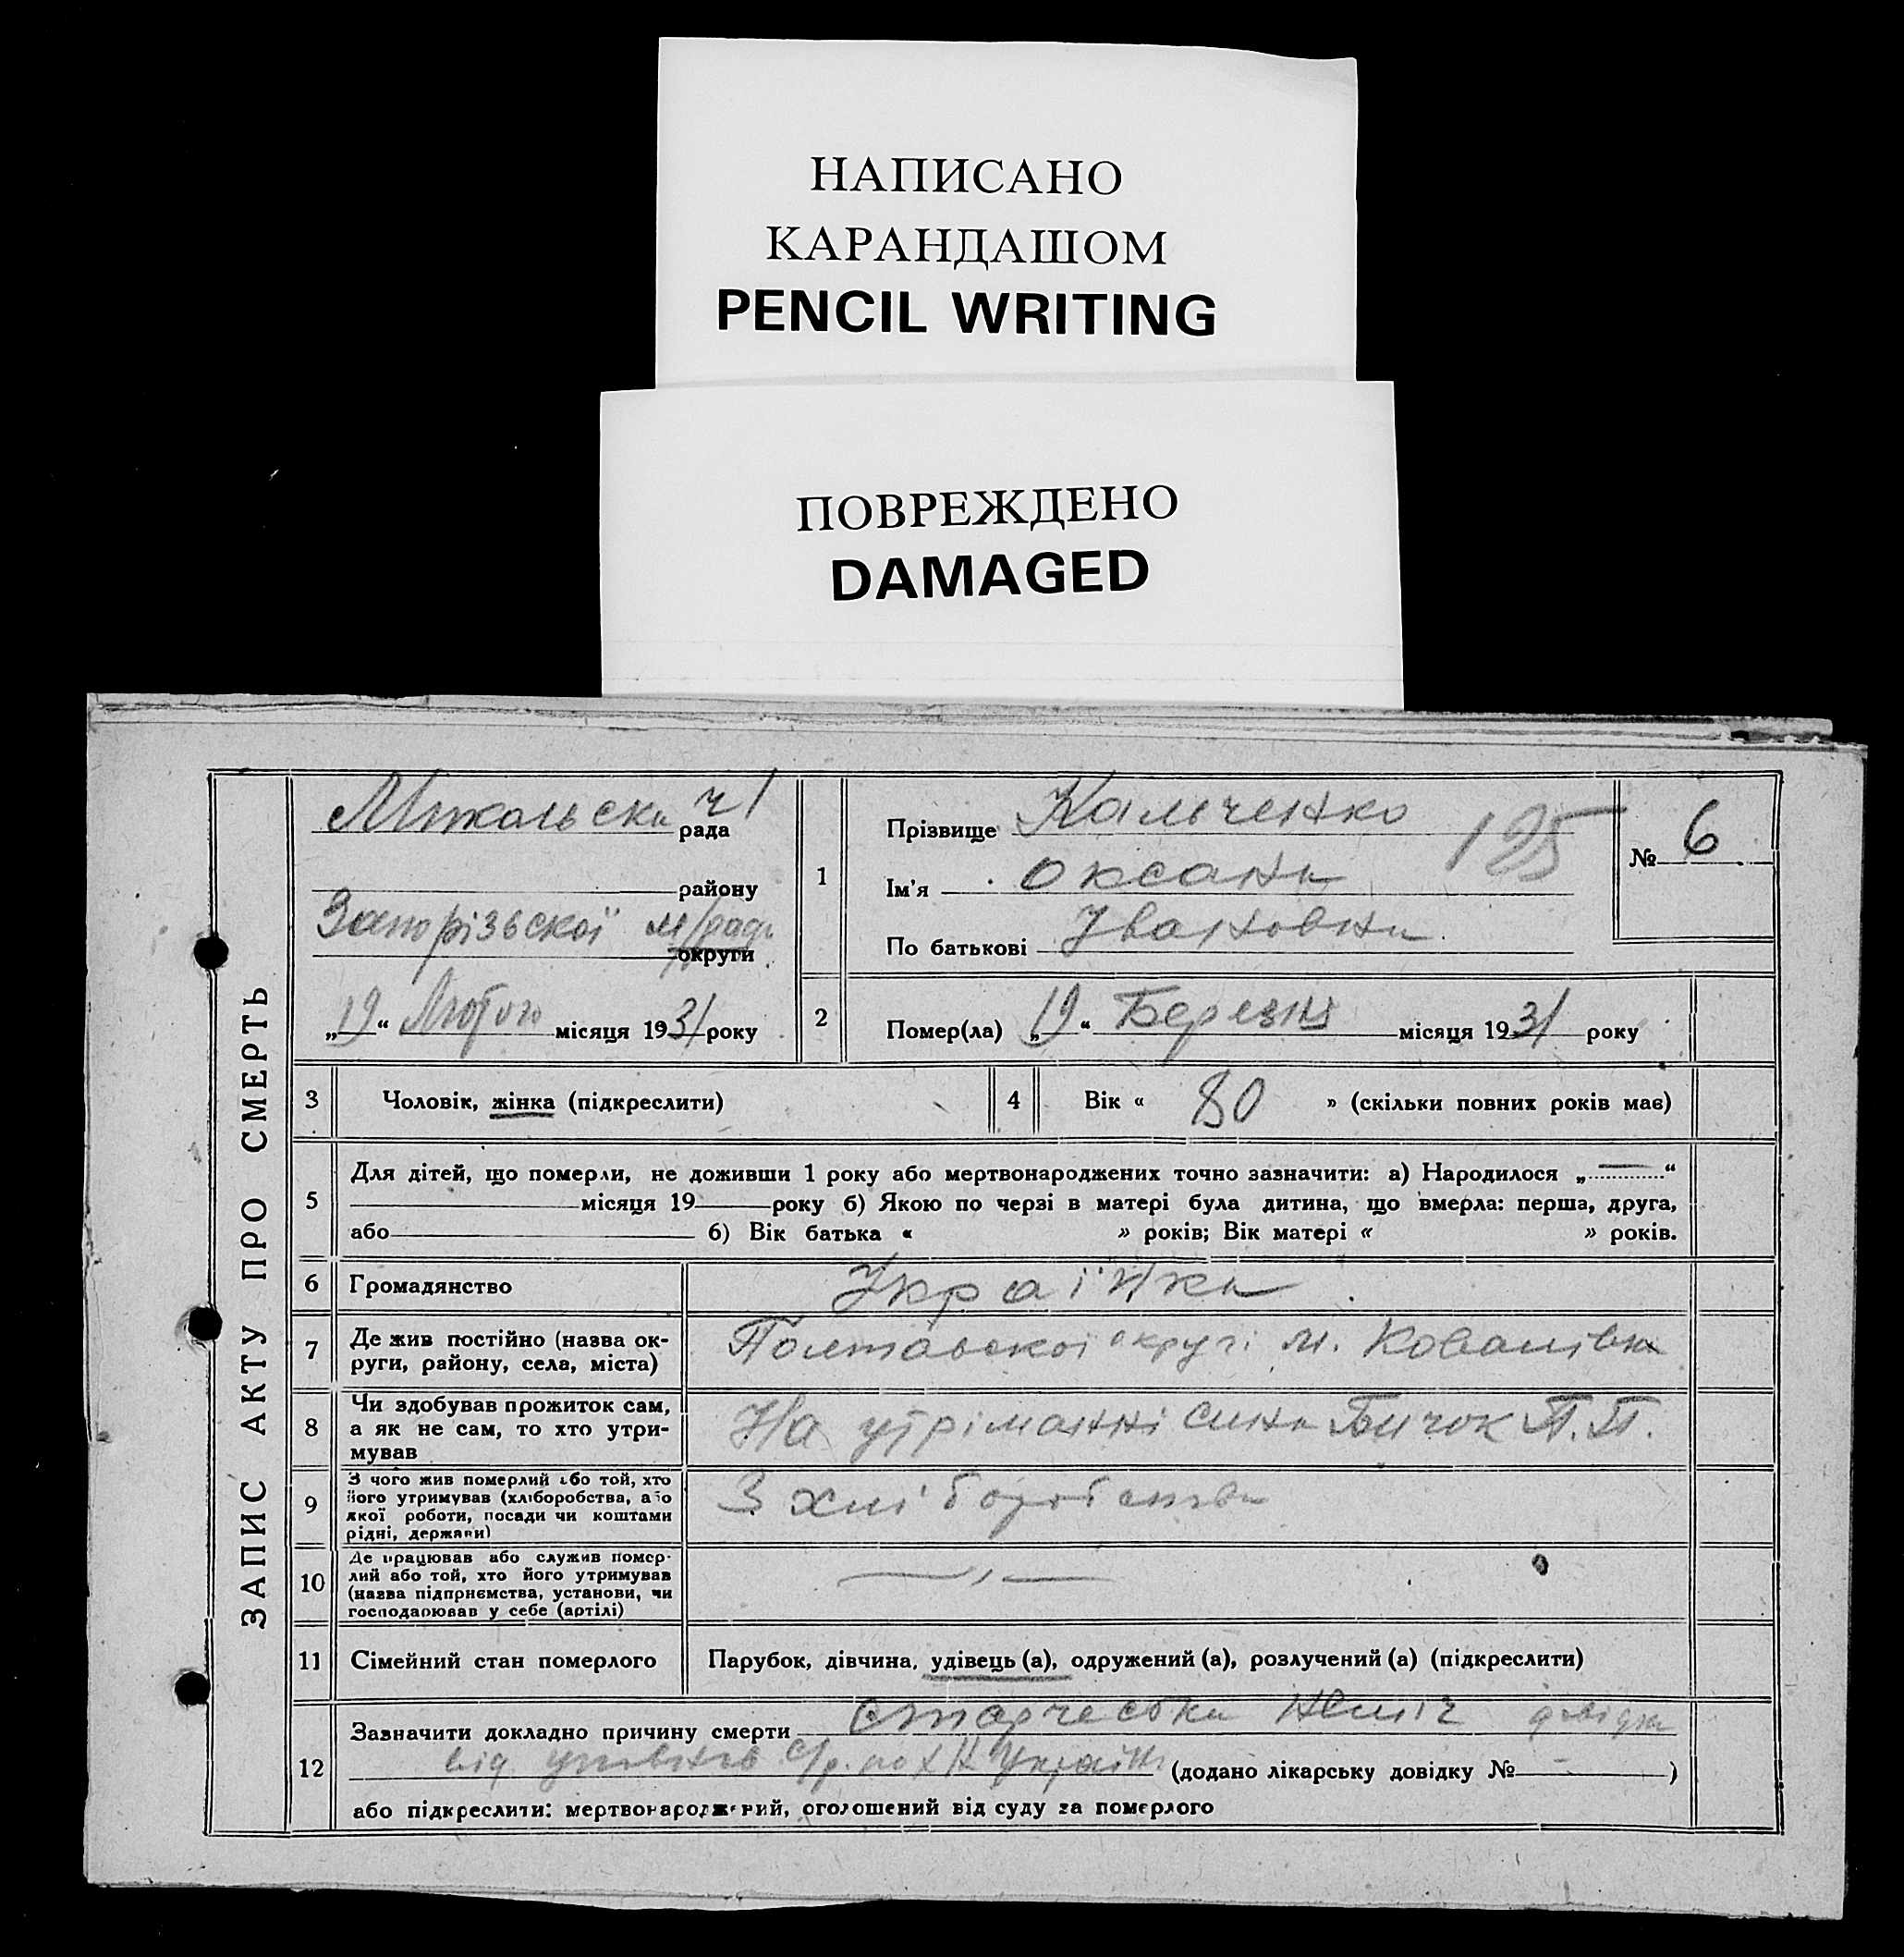 НАПИСАНО
КАРАНДАШОМ
PENCIL WRITING
ПОВРЕЖДЕНО
DAMAGED
ЗАПИС АКТУ ПРО СМЕРТЬ
рада
району
Запорізьскої м/ради
округи
„19“ Лютого місяця 1931 року
1
Прізвище Кальченко
125
Ім'я Оксана
По батькові Івановна
№ 6
2
Помер(ла) „19“ Березня місяця 1931 року
3 Чоловік, жінка (підкреслити)
4 Вік « 80 » (скільки повних років має)
5
Для дітей, що померли, не доживши 1 року або мертвонароджених точно зазначити: а) Народилося „ — “
місяця 19 року б) Якою по черзі в матері була дитина, що вмерла: перша, друга,
або б) Вік батька « » років; Вік матері « » років.
6 Громадянство Українка
7 Де жив постійно (назва ок-
руги, району, села, міста)
Полтавскої округі м. Ковалівка
8 Чи здобував прожиток сам,
а як не сам, то хто утри-
мував
На утріманні сина Бичок П.П.
9 З чого жив померлий або той, хто
його утримував (хліборобства, або
якої роботи, посади чи коштами
рідні, держави)
З хліборобства
10 Де працював або служив помер-
лий або той, хто його утримував
(назва підприємства, установи, чи
господарював у себе (артілі)
11 Сімейний стан померлого
Парубок, дівчина, удівець (а), одружений (а), розлучений (а) (підкреслити)
12
Зазначити докладно причину смерти довідка
від (додано лікарську довідку № - )
або підкреслити: мертвонароджений, оголошений від суду за померлого